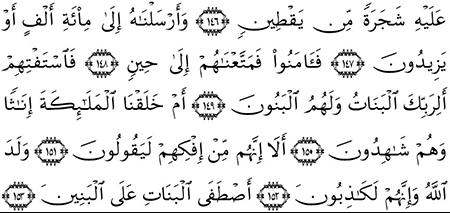 عَلَيْهِ شَجَرَةً مِّن يَقْطِينٍ ﴿١٤٦﴾ وَأَرْسَلْنَاهُ إِلَىٰ مِائَةِ أَلْفٍ أَوْ
يَزِيدُونَ ﴿١٤٧﴾ فَـَٔامَنُوا۟ فَمَتَّعْنَاهُمْ إِلَىٰ حِينٍ ﴿١٤٨﴾ فَٱسْتَفْتِهِمْ
أَلِرَبِّكَ ٱلْبَنَاتُ وَلَهُمُ ٱلْبَنُونَ ﴿١٤٩﴾ أَمْ خَلَقْنَا ٱلْمَلَـٰٓئِكَةَ إِنَـٰثًا
وَهُمْ شَـٰهِدُونَ ﴿١٥٠﴾ أَلَآ إِنَّهُم مِّنْ إِفْكِهِمْ لَيَقُولُونَ ﴿١٥١﴾ وَلَدَ
ٱللَّهُ وَإِنَّهُمْ لَكَـٰذِبُونَ ﴿١٥٢﴾ أَصْطَفَى ٱلْبَنَاتِ عَلَى ٱلْبَنِينَ ﴿١٥٣﴾